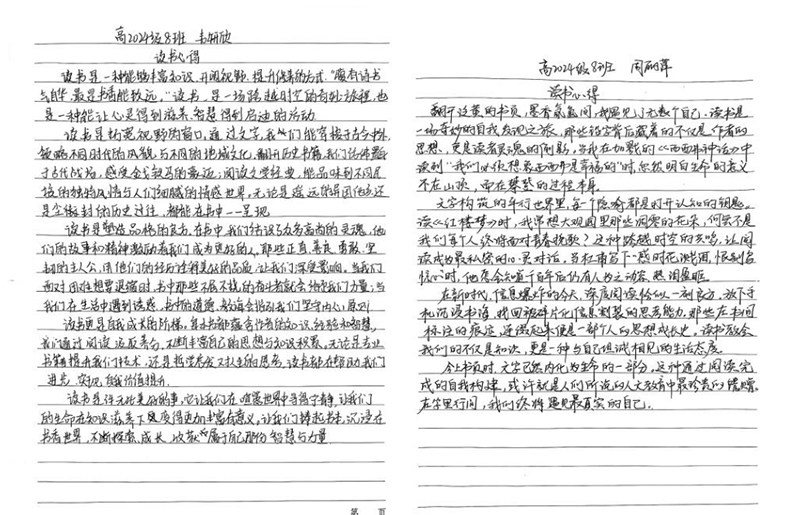 高2024级8班 韦妍欣
读书心得
读书是一种能够丰富知识、开阔视野、提升修养的方式，"腹有诗书
气自华，最是书香能致远。"读书，是一场跨越时空的奇妙旅程，也
是一种能让心灵得到滋养、智慧得到启迪的活动。
读书是拓宽视野的窗口，通过文字，我们能穿梭于古今中外，
领略不同时代的风貌与不同的地域文化，翻开历史书籍，我们仿佛置
于古代战场，感受金戈铁马的豪迈；阅读文学经典，能品味到不同
的独特风情与人们细腻的情感世界，无论是遥远的异国他乡还
是尘封的历史过往，都能在书中一一呈现。
读书是塑造品格的良方。在书中我们结识了众多高尚的灵魂，他
们的故事和精神激励着我们成为更好的人，那些正直、善良、勇敢、坚
韧的主人公，用他们的经历诠释美好的品质，让我们深受影响，当我们
面对困难想要退缩时，书中那些不屈不挠的身影就会给我们力量；当
我们在生活中遇到诱惑，书中的道德教诲会指引我们坚守内心原则
读书更是自我成长的阶梯，每本书都蕴含作者的知识、经验和智慧，
我们通过阅读这反去行，不断丰富自己的思想与知识积累，无论是专业
书籍提升我们技术，还是哲学著作对人生的思考，读书都在帮助我们
进步，实现自我价值提升。
读书是件无比美好的事，它让我们在喧嚣世界中寻得宁静，让我们
的生命在知识滋养下变得更加丰富有意义，让我们捧起书本，沉浸在
书香世界，不断探索、成长，收获属于自己那份智慧与力量。
第 页
高2024级8班 周丽萍
读书心得
翻开泛黄的书页，墨香氤氲间，我遇见了无数个自己。读书是
一场奇妙的自我发现之旅，那些铅字背后藏着的不仅是作者的
思想，更是读者灵魂的倒影，当我在加缪的《西西弗神话》中
读到"我们必须想象西西弗是幸福的"时，忽然明白生命的意义
不在山顶，而在攀登的过程本身。
文字构筑的平行世界里，每个隐喻都是打开认知的钥匙。
读《红楼梦》时，我常想大观园里那些凋零的花朵，何尝不是
我们每个人终将面对的青春挽歌？这种跨越时空的共鸣，让阅
读成为最私密的心灵对话，当
信心时，他
在新时代，信息爆炸的今天，深度阅读恰似一剂良方，放下手
机沉浸书海，找回被碎片化信息割裂的思考能力，那些在书间
标注的痕迹，连缀起来便是一部个人的思想成长史。读书教会
我们的不仅是知识，更是一种与自己坦诚相见的生活态度。
合上书页时，文字已然内化为生命的一部分，这种通过阅读完
成的自我构建，或许就是人们所说的人文教育中最珍贵的馈赠。
在字里行间，我们终将遇见最真实的自己。